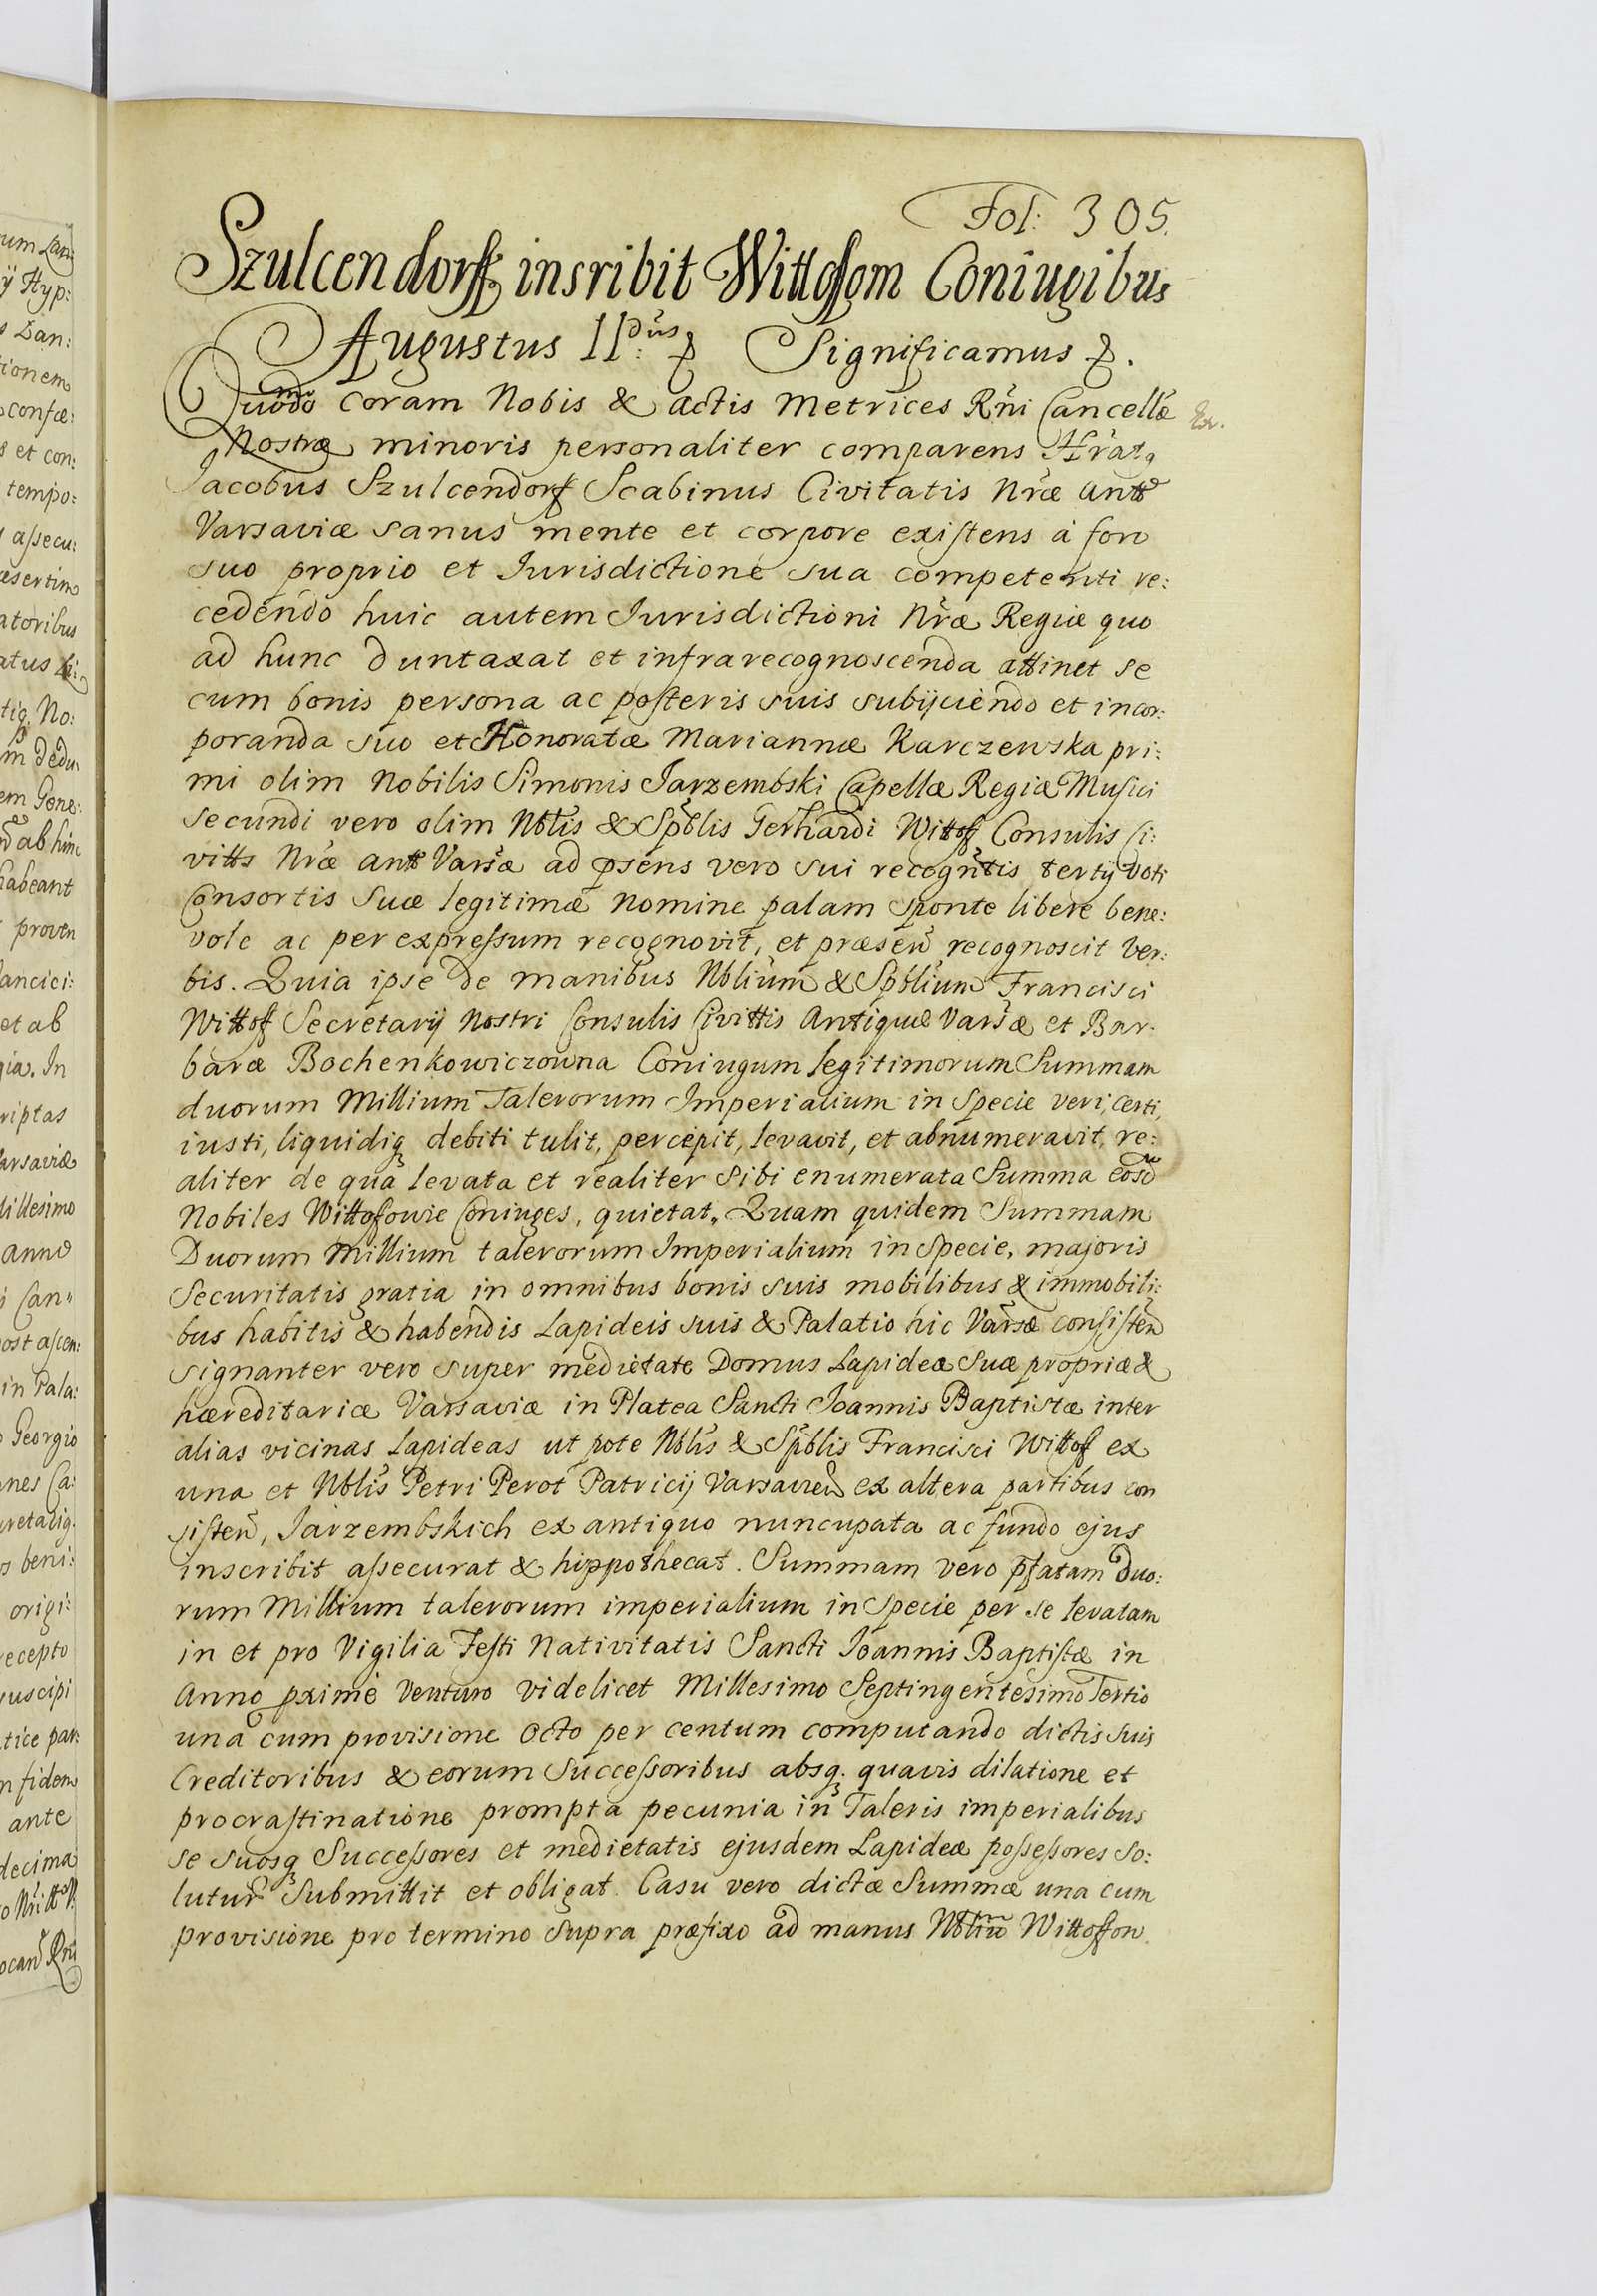 Fol: 305.
Szulcendorff insribit Wittofom Coniugibus
Augustus IIdus: & Significamus &.
Quomodo coram Nobis & actis Metrices Rni Cancellæ
Nostræ minoris personaliter comparens Hratq
Jacobus Szulcendorf Scabinus Civitatis Nræ Antt
Varsaviæ sanus mente et corpore existens à foro
suo proprio et Jurisdictione sua competenti re:
cedendo huic autem Jurisdictioni Nræ Regiæ quo
ad hunc duntaxat et infrarecognoscenda attinet se
cum bonis persona ac posteris suis subijciendo et incor:
poranda suo et Honoratæ Mariannæ Karczewska pri:
mi olim Nobilis Simonis Jarzembski Capellæ Regiæ Musici
secundi vero olim Nblis & Spblis Gerhardi Wittoff Consulis Ci:
vitts Nræ antt Varsæ ad psens vero sui recogntis tertij voti
Consortis Suæ legitimæ nomine palam sponte libere bene:
vole ac per expressum recognovit, et præsen recognoscit ver:
bis. Quia ipse de manibus Nblium & Spblium Francisci
Wittoff Secretarij Nostri Consulis Civittis Antiquæ Varsæ et Bar.
baræ Bochenkowiczowna Coniugum legitimorum Summam
duorum Millium Talerorum Imperialium in Specie veri, certi,
iusti, liquidiq debiti tulit, percepit, levavit, et abnumeravit, re:
aliter de qua levata et realiter sibi enumerata Summa eosd
Nobiles Wittofowie Coniuges, quietat. Quam quidem Summam
Duorum Millium talerorum Imperialium in Specie, majoris
Securitatis gratia in omnibus bonis suis mobilibus & immobili:
bus habitis & habendis Lapideis suis & Palatio hic Varsæ consisten
signanter vero super medietate Domus Lapideæ Suæ propriæ &
hæreditariæ Varsaviæ in Platea Sancti Joannis Baptistæ inter
alias vicinas Lapideas ut pote Nblis & Spblis Francisci Wittof ex
una et Nblis Petri Perot Patricij Varsavien ex altera partibus con
sisten, Jarzembskich ex antiquo nuncupata ac fundo ejus
inscribit assecurat & hippothecat. Summam vero pfatam Duo:
rum Millium talerorum imperialium in Specie per se levatam
in et pro Vigilia Festi Nativitatis Sancti Joannis Baptistæ in
Anno pxime Venturo videlicet Millesimo Septingentesimo Tertio
una cum provisione octo per centum computando dictis suis
Creditoribus & eorum Successoribus absq. quavis dilatione et
procrastinatione prompta pecunia in Taleris imperialibus
se suosq Successores et medietatis ejusdem Lapideæ possessores so:
lutur Submittit et obligat. Casu vero dictæ Summæ una cum
provisione pro termino supra præfixo ad manus Nblium Wittoffon